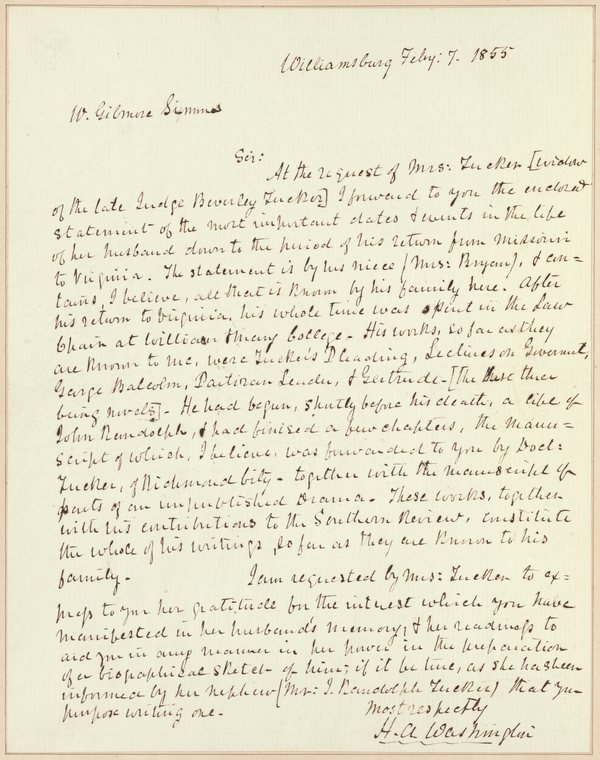 Williamsburg Feby: 7. 1855
W. Gilmore Simms
Sir:
At the request of Mrs: Tucker [widow
of the late Judge Beverley Tucker] I forward to you the enclosed
statement of the most important dates & events in the life
of her husband down to the period of his return from Missouri
to Virginia. The statement is by his niece (Mrs: Bryan), & con=
tains, I believe, all that is known by his family here. After
his return to Virginia, his whole time was spent in the Law
Chair at William & Mary College. His works, so far as they
are known to me, were Tucker's Pleading, Lectures on Government,
George Balcolm, Partizan Leader, & Gertrude. [The three
being novels]. He had begun, shortly before his death, a life of
John Randolph, & had finised a few chapters, the manu=
script of which, I believe, was forwarded to you by Doct:
Tucker, of Richmond City - together with the manuscript of
parts of an unpublished Drama. These works, together
with his contributions to the Southern Review, constitute
the whole of his writings, so far as they are known to his
family.
I am requested by Mrs: Tucker to ex=
press to you her gratitude for the interest which you have
manifested in her husband's memory, & her readiness to
aid you in any manner in her power in the preparation
of a biographical sketch of him; if it be true, as she has been
informed by her nephew (Mr: J. Randolph Tucker) that you
purpose writing one.
Most respectfly
H. A. Washington